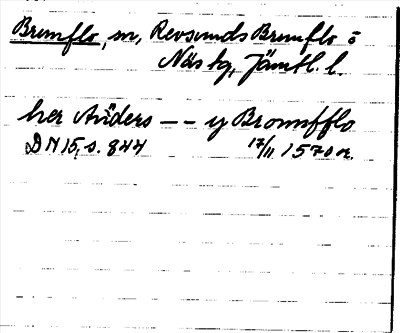 Brunflo, sn, Revsunds Brunflo o
Näs tg, Jämtl. l.
her Anders -- y Bronnfflo
DN 15, s. 844 17/11 1570 or.